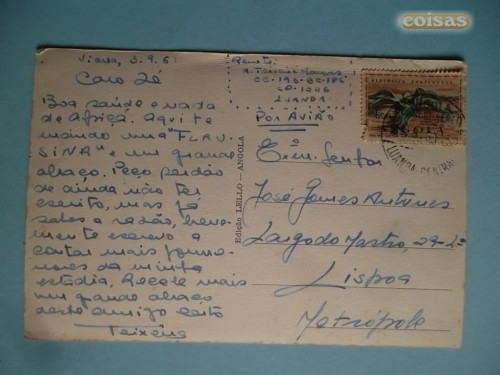 coisas
Viana, 3.9.61
Caro Zé
Boa saúde e nada
de Africa. Aqui te
mando uma "FLAU-
SINA" e um grande
abraço. Peço perdão
de ainda não ter
escrito, mas já
sabes a razão, breve-
mente escrevo a
contar mais pormenores
da minha
estadia. Recebe mais
um grande abraço
deste amigo certo
Teixeira
Edição LELLO - ANGOLA
Remte:
LUANDA
POR AVIÃO
Exmo. Senhor
José Gomes Antunes
Largo do Mastro, 29-2º
Lisboa
Metrópole
REPÚBLICA PORTUGUESA
ANGOLA
LUANDA-CENTRAL